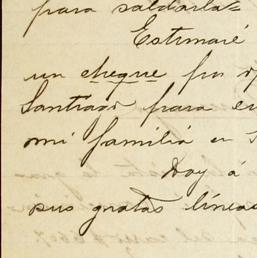 para saldarla=
Estimaré
un cheque por
Santiago para en
mi familia en
Doy á
sus gratas líneas